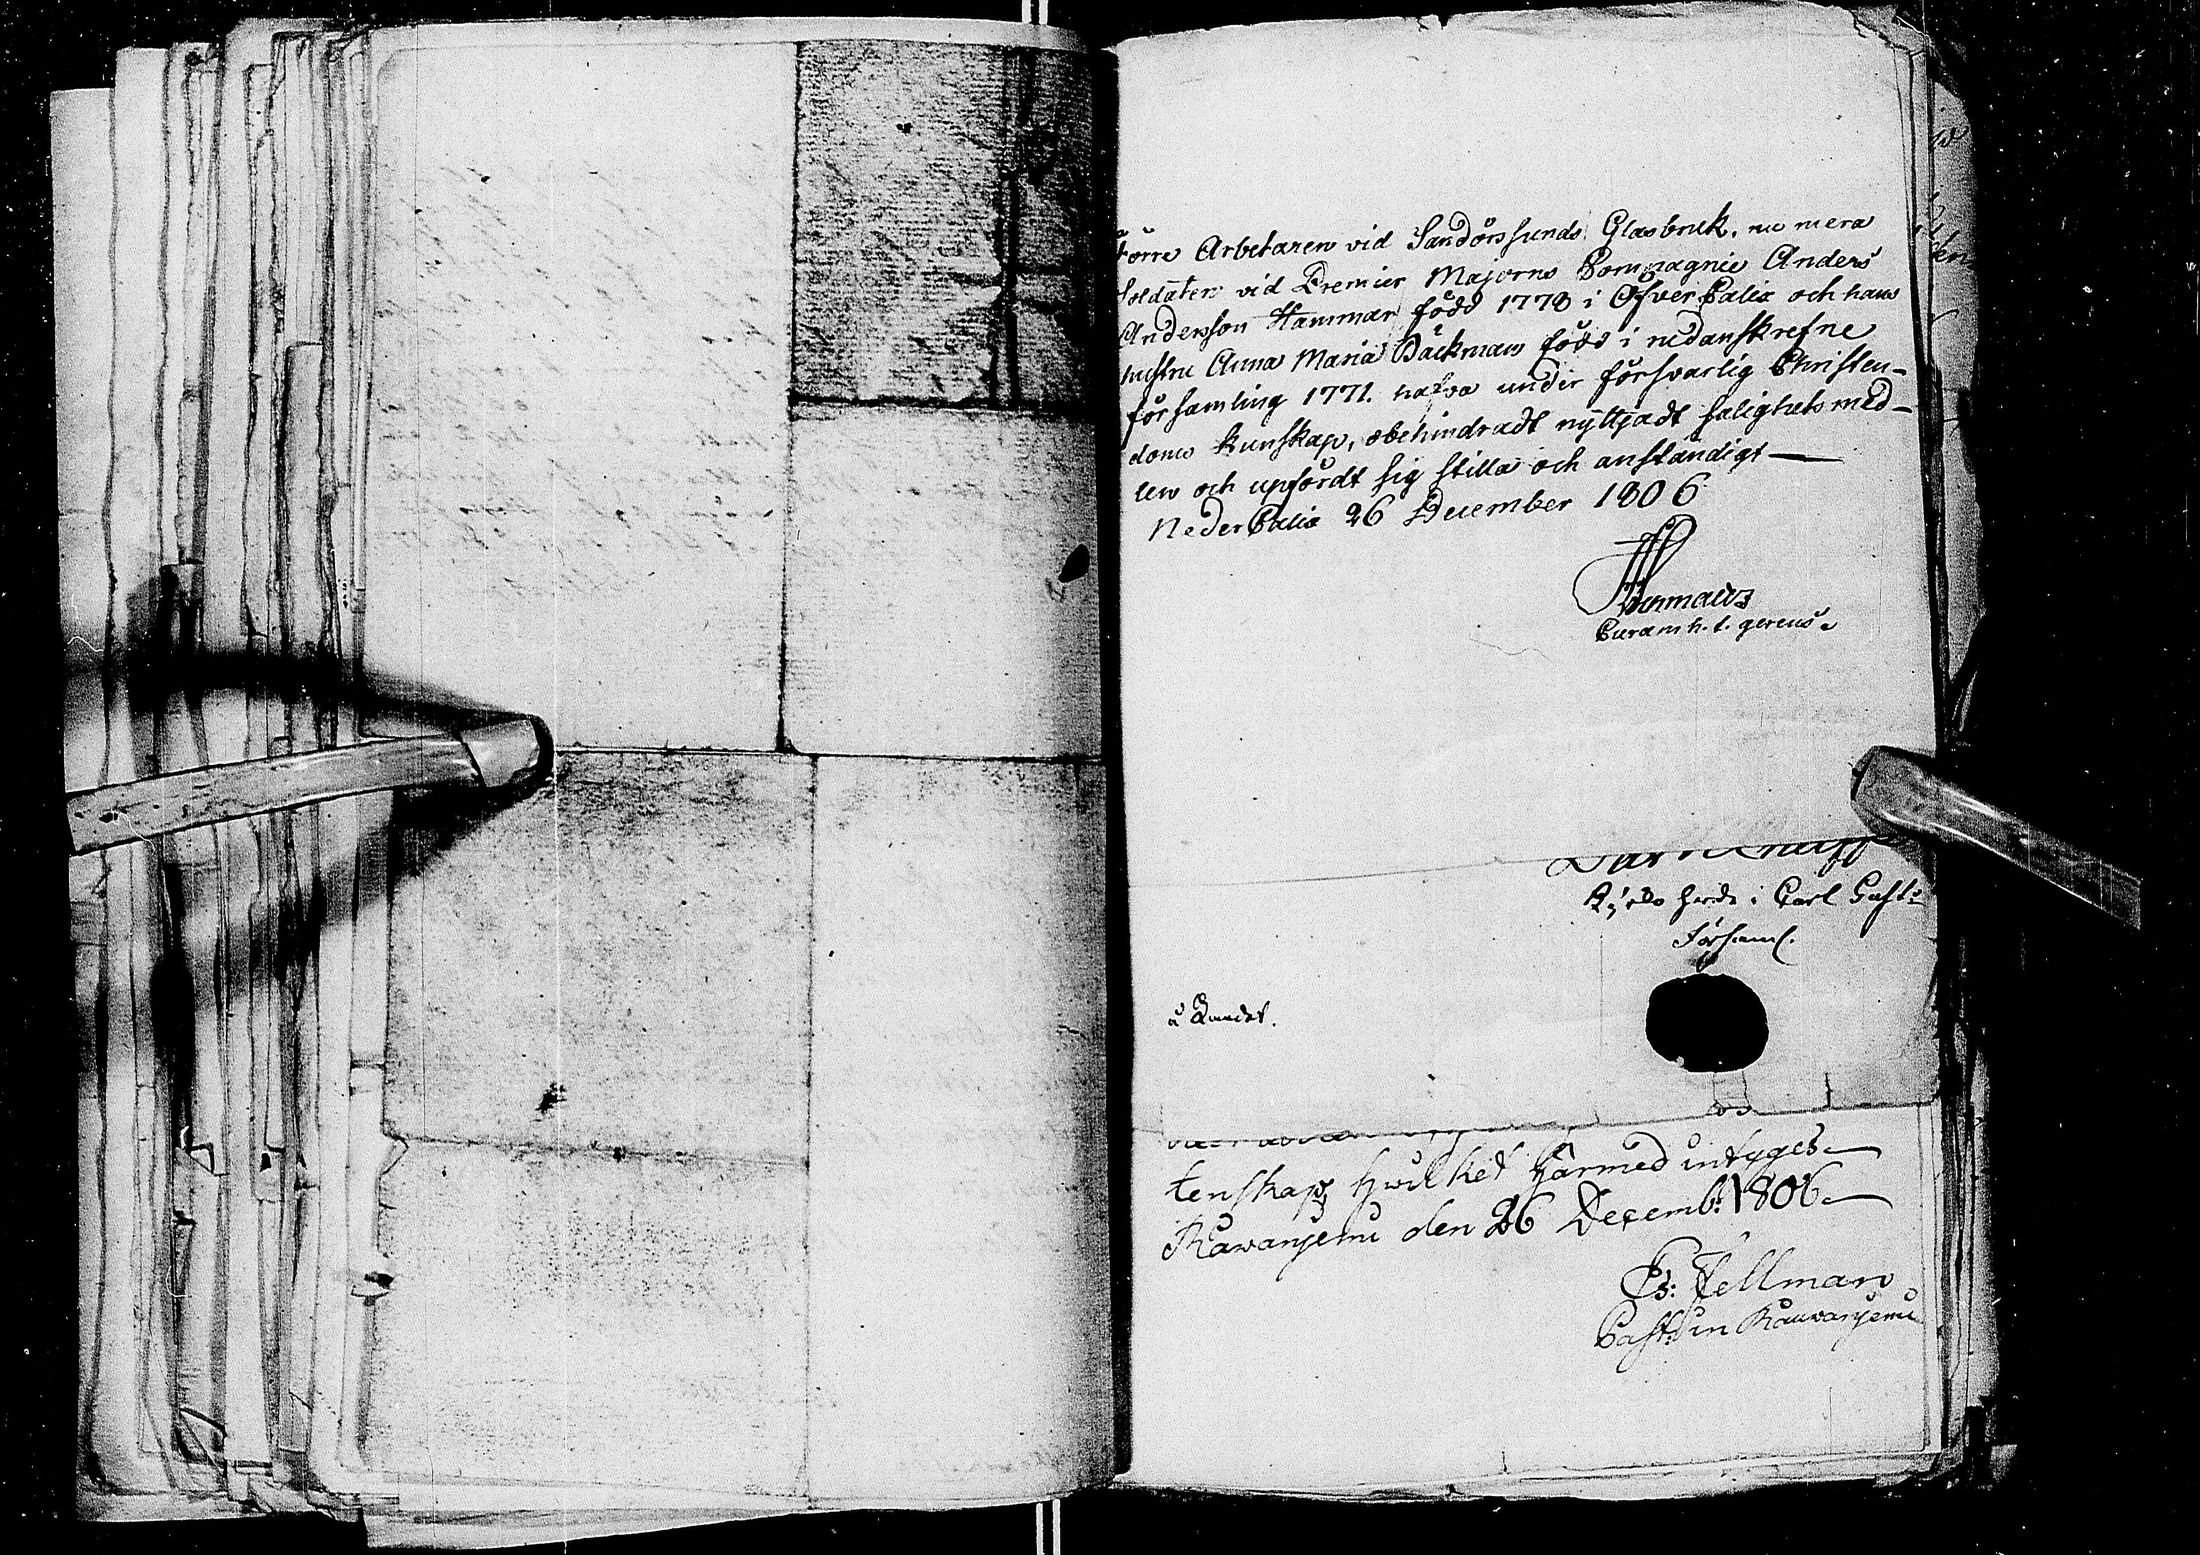 Förre Arbetaren vid Sandörssunds Glasbruk, nu mera
Soldaten vid Premier Majorns Compagnie Anders
Andersson Hammar född 1778 i Öfver Calix och hans
hustru Anna Maria Bäckman född i nedanskrefne
församling 1771. hafva under försvarlig Christen-
doms kunskap, obehindradt nyttjadt salighets med-
len och upfördt sig stilla och anständigt
Neder Calix 26 December 1806
Curam h. t. gerens.
i Carl Gust:
Församl.
tenskap hwilket härmed intyges
Rawanjemi den 26 Decemb: 1806
Es: Fellman
Past: in Rauwanjemi